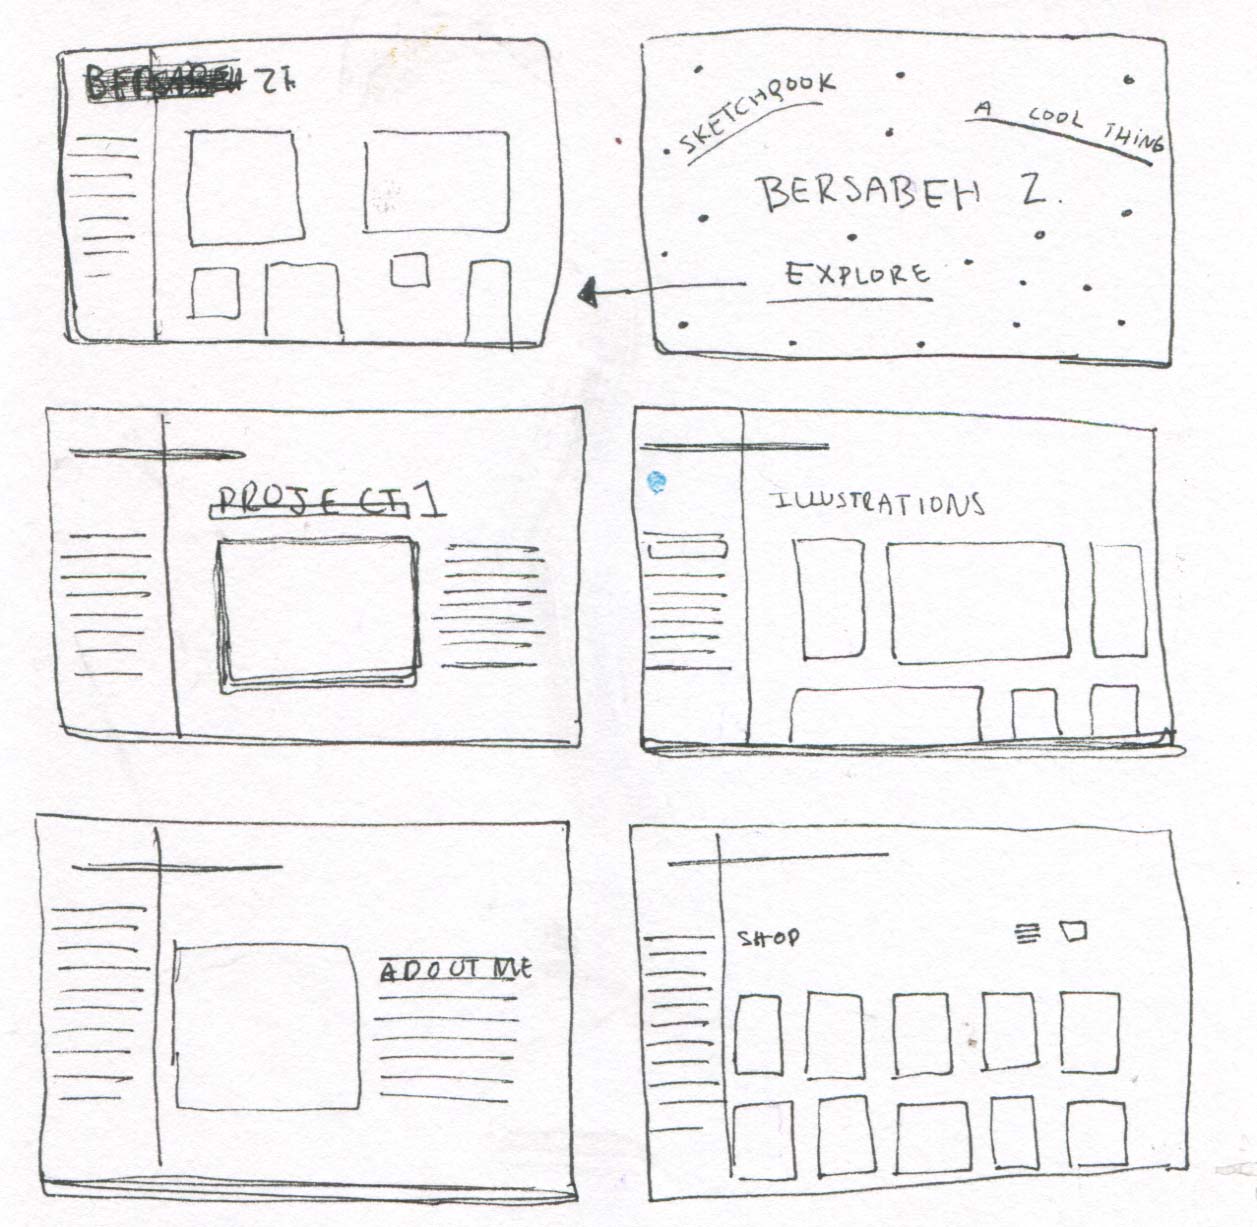 BERSABEH Z
SKETCHBOOK
A COOL THING
BERSABEH Z.
EXPLORE
PROJECT 1
ILLUSTRATIONS
ABOUT ME
SHOP